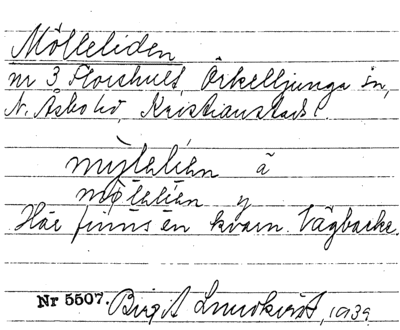 Mölleliden
nr 3 Floshult, Örkelljunga sn,
N. Åsbo hd, Kristianstads l.
mỳlelíen ä
mỳlelíen y
Här finns en kvarn. Vägbacke.
Nr 5507. Birgit Lundkvist, 1939